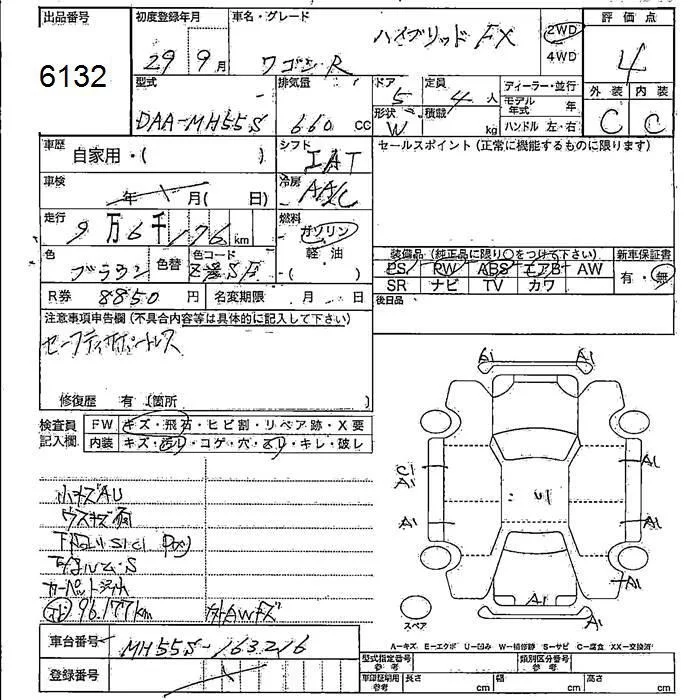 出品番号
6132
初度登録年月
29 9月
車名・グレード
ワゴンR ハイブリッド FX
2WD
4WD
評価点
4
外装 内装
C C
型式
DAA-MH55S
排気量
660 CC
ドア
5
形状
W
定員
4人
積載
kg
ディーラー・並行
モデル年式 年
ハンドル 左・右
車歴
自家用・( )
シフト
IAT
セールスポイント (正常に機能するものに限ります)
車検
年 月( 日)
冷房
AAC
走行
9万6千176km
燃料
ガソリン
軽油
( )
色
ブラウン
色替
色コード
R券 8850円
名変期限 月 日
装備品 (純正品に限り○をつけて下さい)
PS PW ABS エアB AW
SR ナビ TV カワ
新車保証書
有・無
後日品
注意事項申告欄 (不具合内容等は具体的に記入して下さい)
セーフティサポートレス
修復歴 有 (箇所 )
検査員記入欄
FW キズ・飛石・ヒビ割・リペア跡・X要
内装 キズ・汚レ・コゲ・穴・スレ・キレ・破レ
小キズAU
ウスキズ有
カーペット汚れ
96.177km
外AWキズ
車台番号 MH55S-163216
登録番号
G1 A1
C1
A1
A1
A1
A1
A1
A1
A1
U1
スペア
A-キズ E-エクボ U-凹み W-補修跡 S-サビ C-腐食 XX-交換済
型式指定番号 参考
類別区分番号 参考
車印証明用 参考
長さ cm
幅 cm
高さ cm